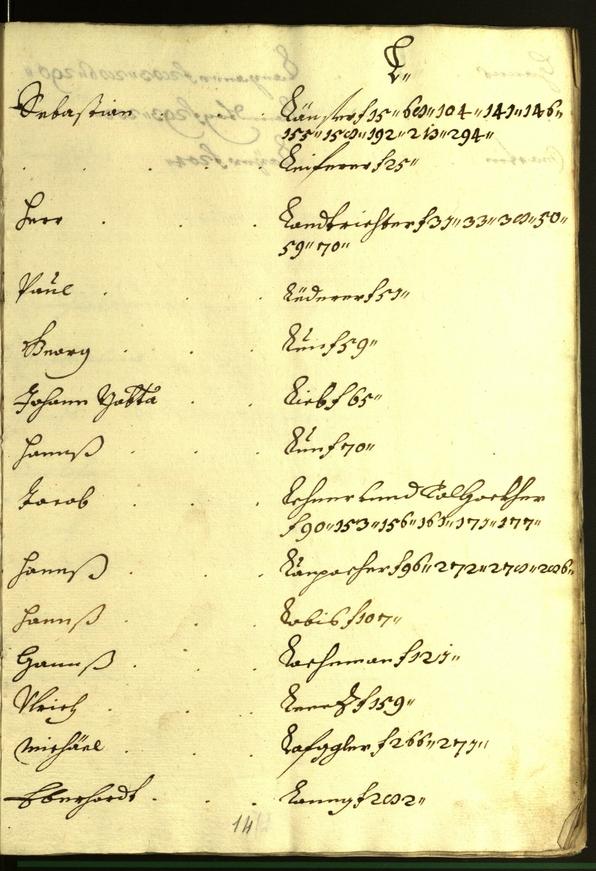 L"
Sebastian . . . Länster f 15" 68" 104" 141" 146"
155" 158" 192" 213" 294"
. . . . Leiferer f 25"
Herr . . . Landtrichter f 31" 33" 38" 50"
59" 70"
Paul . . . Lüderer f 51"
Georg . . . Lun f 59"
Johann . . Lieb f 65"
Hannß . . . Lun f 70"
Jacob . . . Lehner
f 90" 153" 156" 161" 171" 177"
Hannß . . . Länpacher f 96" 272" 278" 286"
Hannß . . . Lobis f 107"
Hannß . . . Lachman f 121"
Ulrich . . . f 159"
Michäel . . . Lafggler f 266" 271"
Eberhardt . . . Lanng f 282"
14